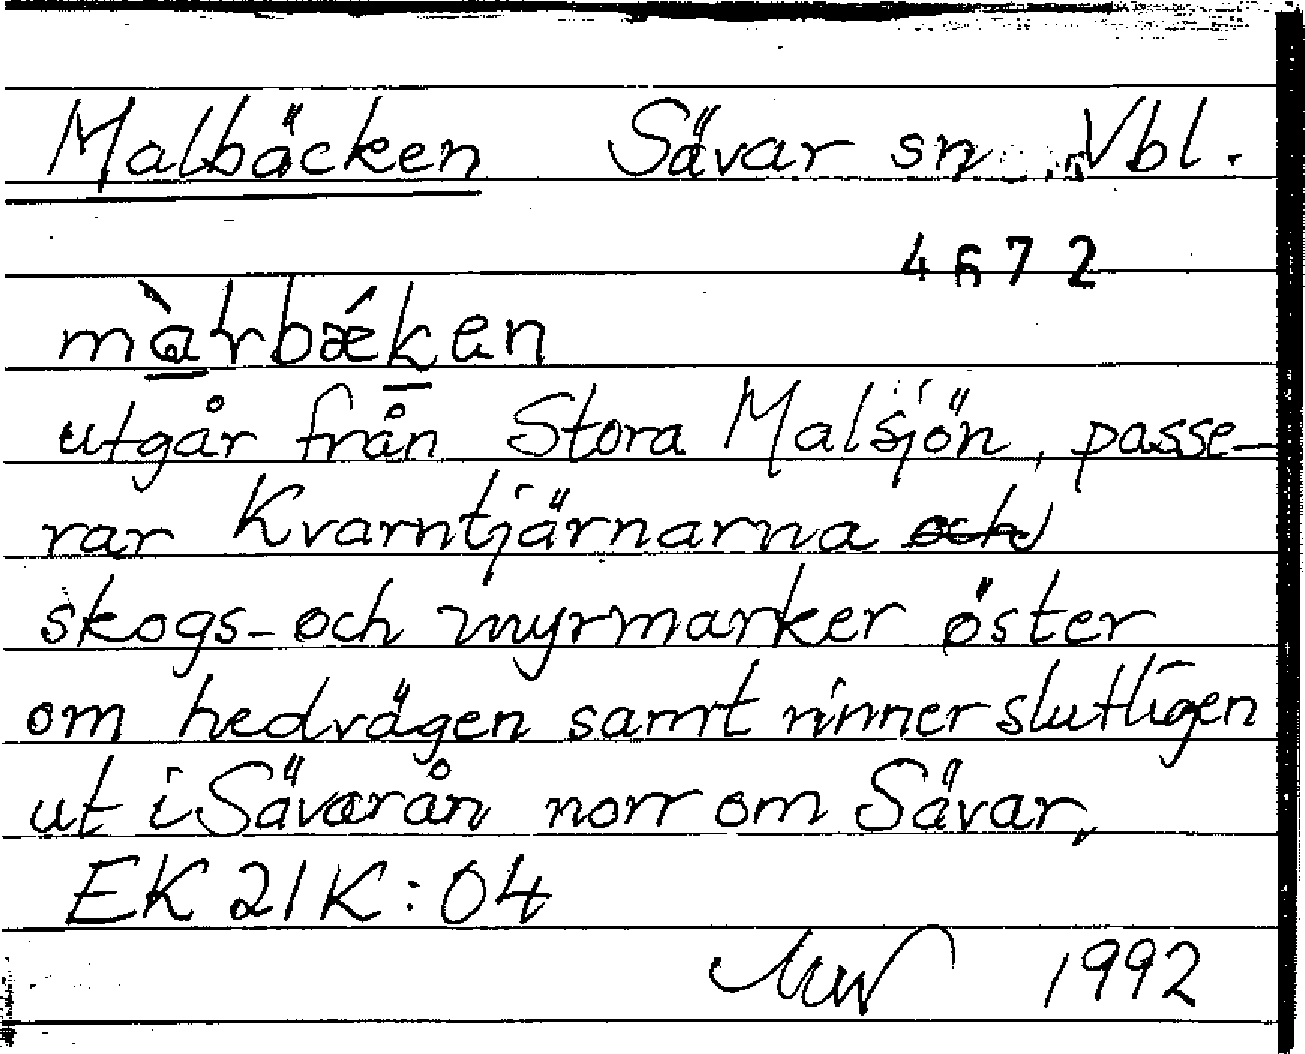 Malbäcken Sävar sn Vbl.
4672
utgår från Stora Malsjön, passe-
rar Kvarntjärnarna och
skogs- och myrmarker öster
om hedvägen samt rinner slutligen
ut i Sävarån norr om Sävar.
EK 21K:04
1992